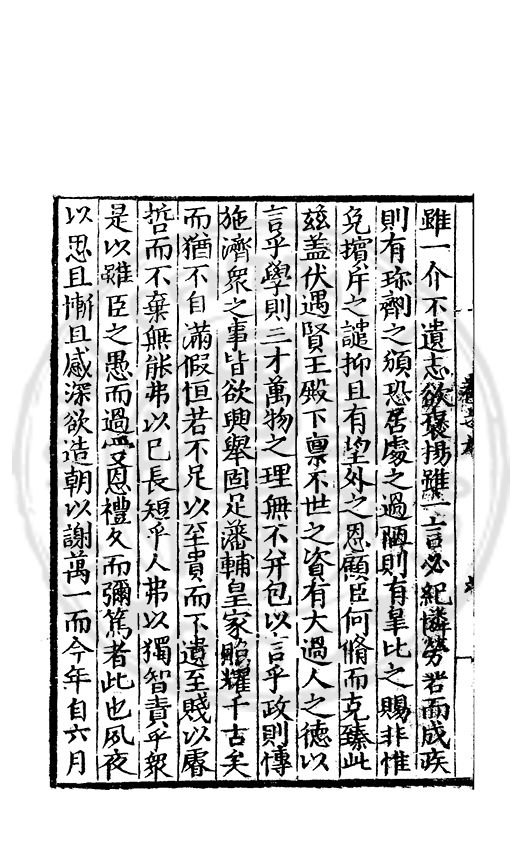 雖一介不遺志欲褒揚雖一言必紀憐勞苦而成疾
則有珎劑之頒恐居處之過陋則有皐比之賜非惟
免擯斥之譴抑且有望外之恩顧臣何脩而克臻此
茲盖伏遇賢王殿下禀不世之資有大過人之德以
言乎學則三才萬物之理無不并包以言乎政則博
施濟衆之事皆欲興舉固足藩輔皇家照耀千古矣
而猶不自滿假恒若不足以至貴而下遺至賤以睿
哲而不棄無能弗以巳長短乎人弗以獨智責乎衆
是以雖臣之愚而過受恩禮久而彌篤者此也夙夜
以思且慚且感深欲造朝以謝萬一而今年自六月